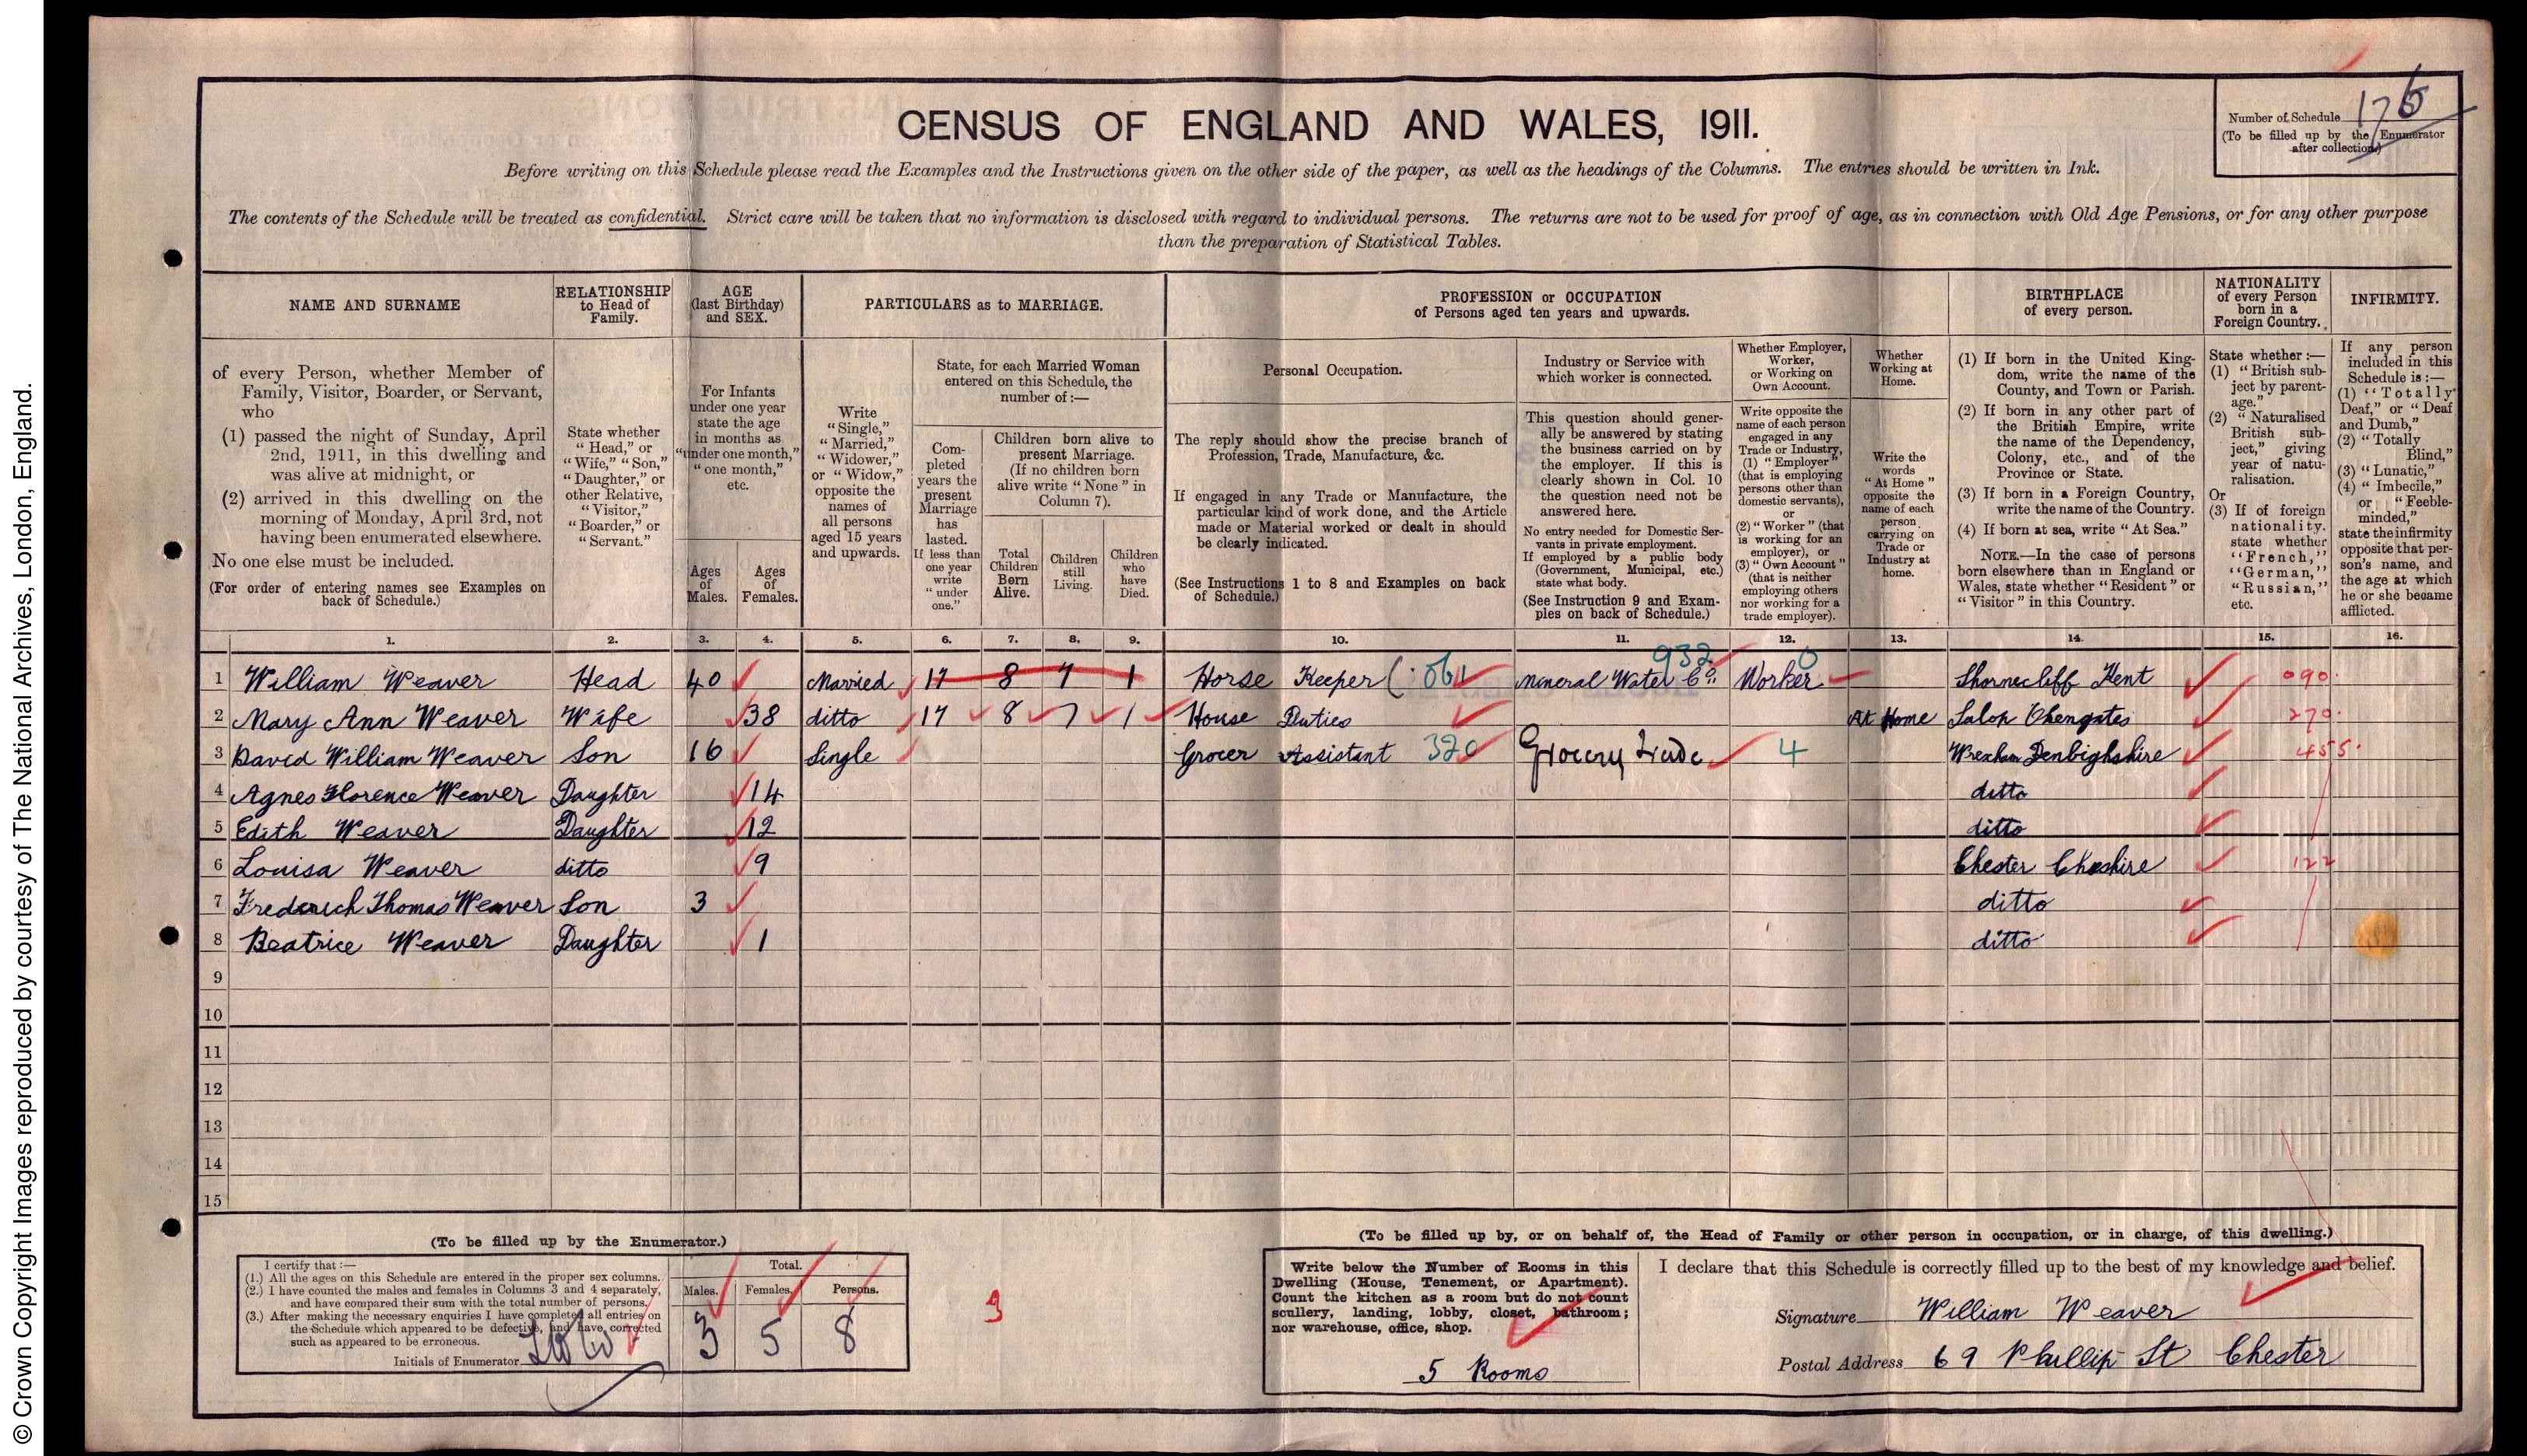 © Crown Copyright Images reproduced by courtesy of The National Archives, London, England.
CENSUS OF ENGLAND AND WALES, 1911.
Number of Schedule 176
(To be filled up by the Enumerator after collection)
Before writing on this Schedule please read the Examples and the Instructions given on the other side of the paper, as well as the headings of the Columns. The entries should be written in Ink.
The contents of the Schedule will be treated as confidential. Strict care will be taken that no information is disclosed with regard to individual persons. The returns are not to be used for proof of age, as in connection with Old Age Pensions, or for any other purpose
than the preparation of Statistical Tables.
NAME AND SURNAME
of every Person, whether Member of
Family, Visitor, Boarder, or Servant,
who
(1) passed the night of Sunday, April
2nd, 1911, in this dwelling and
was alive at midnight, or
(2) arrived in this dwelling on the
morning of Monday, April 3rd, not
having been enumerated elsewhere.
No one else must be included.
(For order of entering names see Examples on
back of Schedule.)
RELATIONSHIP
to Head of
Family.
State whether
"Head," or
"Wife," "Son,"
"Daughter," or
other Relative,
"Visitor,"
"Boarder," or
"Servant."
AGE
(last Birthday)
and SEX.
For Infants
under one year
state the age
in months as
"under one month,"
"one month,"
etc.
Ages
of
Males.
Ages
of
Females.
PARTICULARS as to MARRIAGE.
Write
"Single,"
"Married,"
"Widower,"
or "Widow,"
opposite the
names of
all persons
aged 15 years
and upwards.
State, for each Married Woman
entered on this Schedule, the
number of :—
Com-
pleted
years the
present
Marriage
has
lasted.
If less than
one year
write
"under
one."
Children born alive to
present Marriage.
(If no children born
alive write "None" in
Column 7).
Total
Children
Born
Alive.
Children
still
Living.
Children
who
have
Died.
PROFESSION or OCCUPATION
of Persons aged ten years and upwards.
Personal Occupation.
The reply should show the precise branch of
Profession, Trade, Manufacture, &c.
If engaged in any Trade or Manufacture, the
particular kind of work done, and the Article
made or Material worked or dealt in should
be clearly indicated.
(See Instructions 1 to 8 and Examples on back
of Schedule.)
Industry or Service with
which worker is connected.
This question should gener-
ally be answered by stating
the business carried on by
the employer. If this is
clearly shown in Col. 10
the question need not be
answered here.
No entry needed for Domestic Ser-
vants in private employment.
If employed by a public body
(Government, Municipal, etc.)
state what body.
(See Instruction 9 and Exam-
ples on back of Schedule.)
Whether Employer,
Worker,
or Working on
Own Account.
Write opposite the
name of each person
engaged in any
Trade or Industry,
(1) "Employer"
(that is employing
persons other than
domestic servants),
or
(2) "Worker" (that
is working for an
employer), or
(3) "Own Account"
(that is neither
employing others
nor working for a
trade employer).
Whether
Working at
Home.
Write the
words
"At Home"
opposite the
name of each
person
carrying on
Trade or
Industry at
home.
BIRTHPLACE
of every person.
(1) If born in the United King-
dom, write the name of the
County, and Town or Parish.
(2) If born in any other part of
the British Empire, write
the name of the Dependency,
Colony, etc., and of the
Province or State.
(3) If born in a Foreign Country,
write the name of the Country.
(4) If born at sea, write "At Sea."
NOTE.—In the case of persons
born elsewhere than in England or
Wales, state whether "Resident" or
"Visitor" in this Country.
NATIONALITY
of every Person
born in a
Foreign Country.
State whether :—
(1) "British sub-
ject by parent-
age."
(2) "Naturalised
British sub-
ject," giving
year of natu-
ralisation.
Or
(3) If of foreign
nationality.
state whether
"French,"
"German,"
"Russian,"
etc.
INFIRMITY.
If any person
included in this
Schedule is :—
(1) "Totally
Deaf," or "Deaf
and Dumb,"
(2) "Totally
Blind,"
(3) "Lunatic,"
(4) "Imbecile,"
or "Feeble-
minded,"
state the infirmity
opposite that per-
son's name, and
the age at which
he or she became
afflicted.
1. 2. 3. 4. 5. 6. 7. 8. 9. 10. 11. 12. 13. 14. 15. 16.
932 0
1 William Weaver Head 40 Married 17 8 7 1 Horse Keeper Mineral Water Co. Worker Shorncliff Kent 090
2 Mary Ann Weaver Wife 38 ditto 17 8 7 1 House Duties At Home Salop 270
3 David William Weaver Son 16 Single Grocer Assistant 320 Grocery Trade 4 Wrexham Denbighshire 455
4 Agnes Florence Weaver Daughter 14 ditto
5 Edith Weaver Daughter 12 ditto
6 Louisa Weaver ditto 9 Chester Cheshire 122
7 Frederich Thomas Weaver Son 3 ditto
8 Beatrice Weaver Daughter 1 ditto
9
10
11
12
13
14
15
(To be filled up by the Enumerator.)
I certify that :—
(1.) All the ages on this Schedule are entered in the proper sex columns.
(2.) I have counted the males and females in Columns 3 and 4 separately,
and have compared their sum with the total number of persons.
(3.) After making the necessary enquiries I have completed all entries on
the Schedule which appeared to be defective, and have corrected
such as appeared to be erroneous.
Initials of Enumerator
Total.
Males. Females. Persons.
3 5 8
3
(To be filled up by, or on behalf of, the Head of Family or other person in occupation, or in charge, of this dwelling.)
Write below the Number of Rooms in this
Dwelling (House, Tenement, or Apartment).
Count the kitchen as a room but do not count
scullery, landing, lobby, closet, bathroom;
nor warehouse, office, shop.
5 Rooms
I declare that this Schedule is correctly filled up to the best of my knowledge and belief.
Signature William Weaver
Postal Address 69 Phillip St Chester